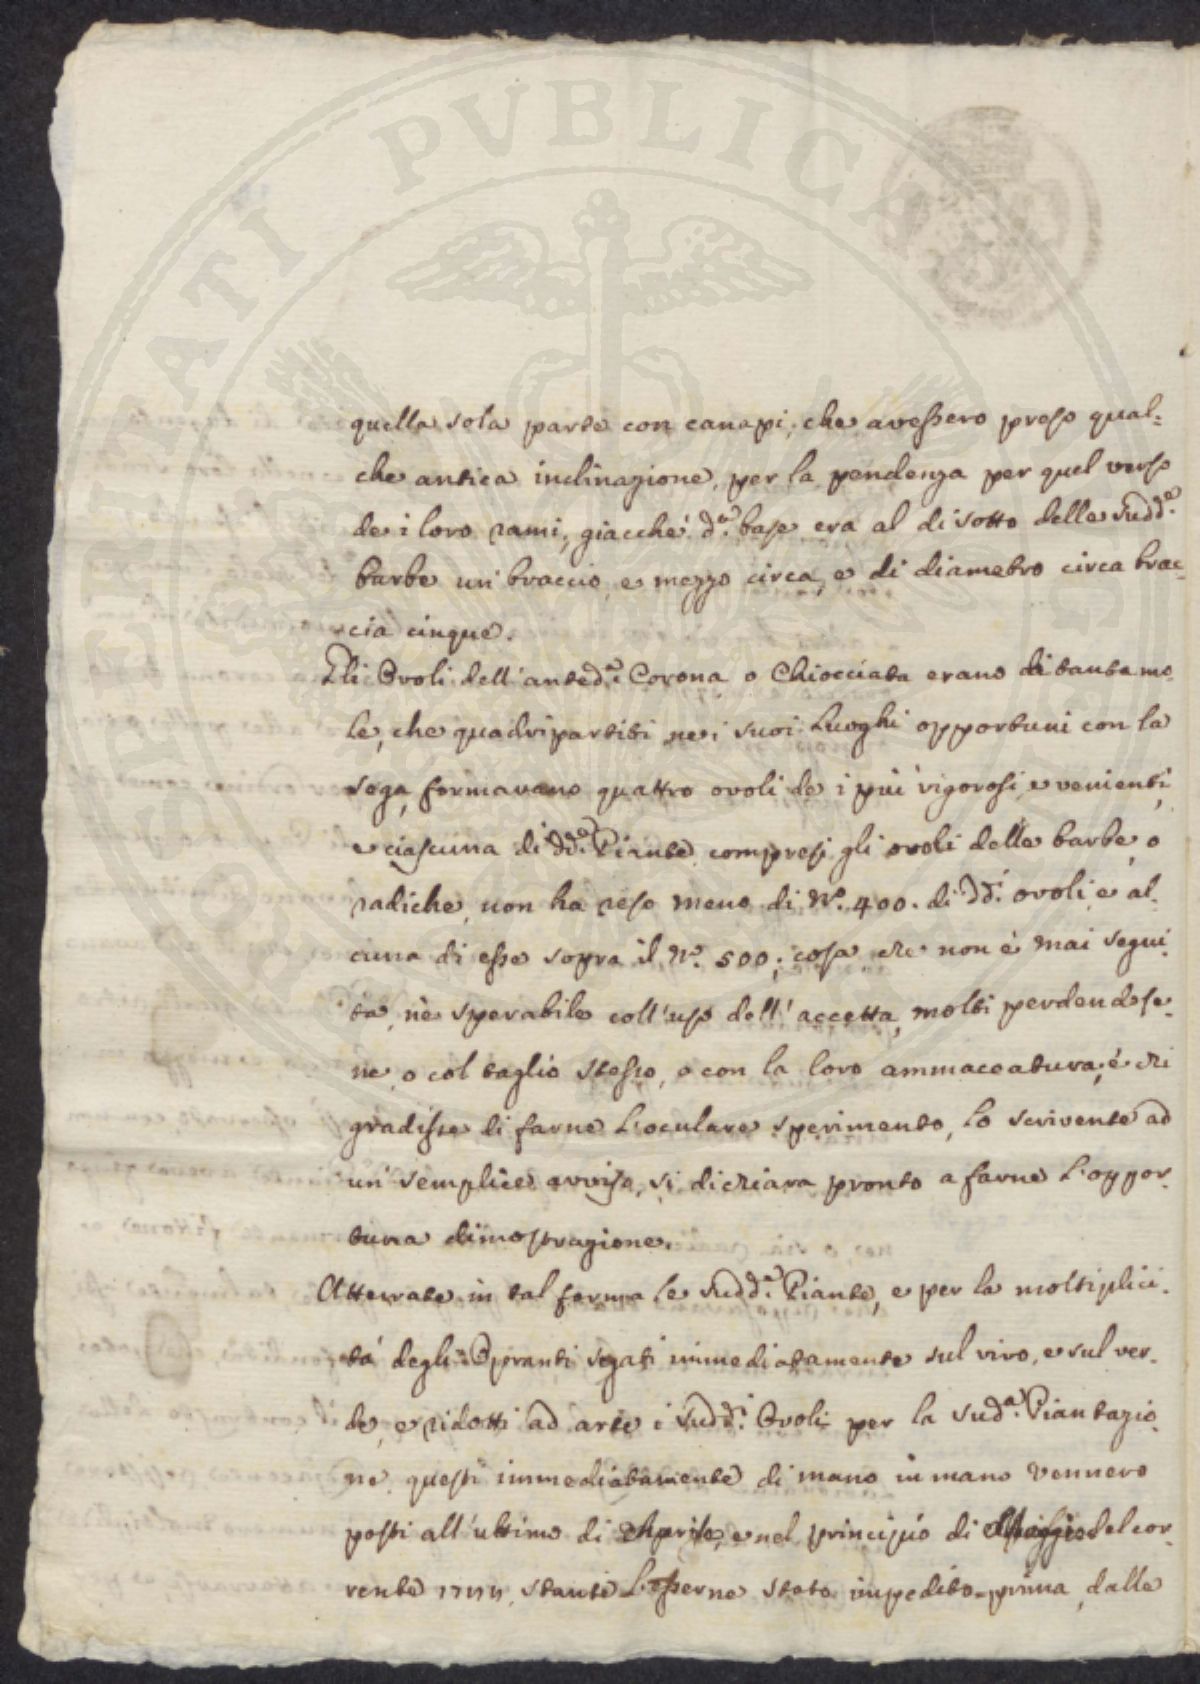 quella sola parte con canapi, che avessero preso qual=
che antica inclinazione, per la pendenza per quel verso
de i loro rami, giacchè d.ª base era al di sotto delle sudd.e
barbe un braccio, e mezzo circa, e di diametro circa brac=
cia cinque.
Gli Ovoli dell'anted.ª Corona o Chiocciata erano di tanta mo=
le, che quadripartiti ne i suoi Luoghi opportuni con la
sega, formavano quattro ovoli de i più vigorosi, e venienti,
e ciascuna di dd.e Piante, compresi gli ovoli delle barbe, o
radiche, non ha reso meno di N.º 400. di dd.i ovoli, e al=
cuna di esse sopra il N.º 500; cosa che non è mai segui=
ta, nè sperabile coll'uso dell'accetta, molti perdendose=
ne, o col taglio stesso, o con la loro ammaccatura; è chi
gradisse di farne l'oculare sperimento, lo scrivente ad
un semplice avviso, si dichiara pronto a farne l'oppor=
tuna dimostrazione.
Atterrate in tal forma le sudd.e Piante, e per la moltiplici=
tà degli Opranti segati immediatamente sul vivo, e sul ver=
de, e ridotti ad arte i sudd.i Ovoli per la sud.ª Piantazio=
ne, questi immediatamente di mano in mano vennero
posti all'ultimo di Aprile, e nel principio di Maggio del cor=
rente 1777, stante l'esserne stato impedito prima, dalle